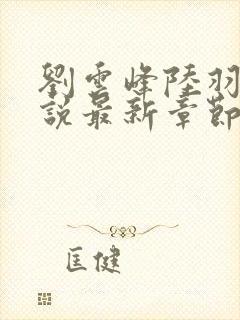 劉雲峰陸羽
說最新章節
匡健